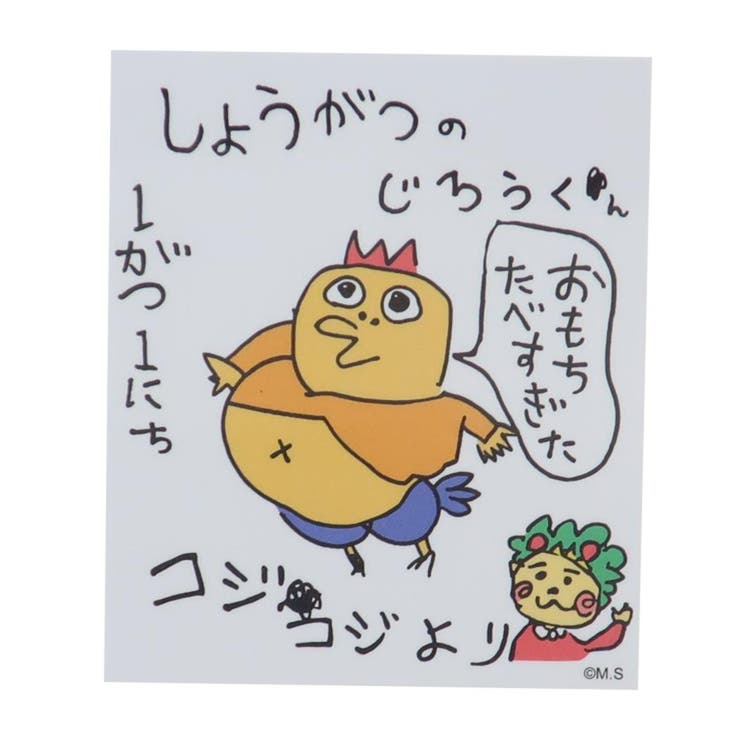 しょうがつの
じろうくん
1がつ1にち
おもち
たべすぎた
コジ
コジより
©M.S